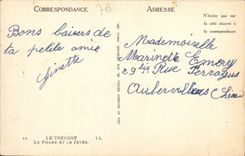 CORRESPONDANCE
76
Bons baisers de
ta petite amie
Ginette
ADRESSE
N'écrire que sur
le côté réservé à
la correspondance
Mademoiselle
Marinette Emery
29 Rue
Aubervilliers (Seine)
LE TRÉPORT
LE PHARE ET LA JETÉE.
LL